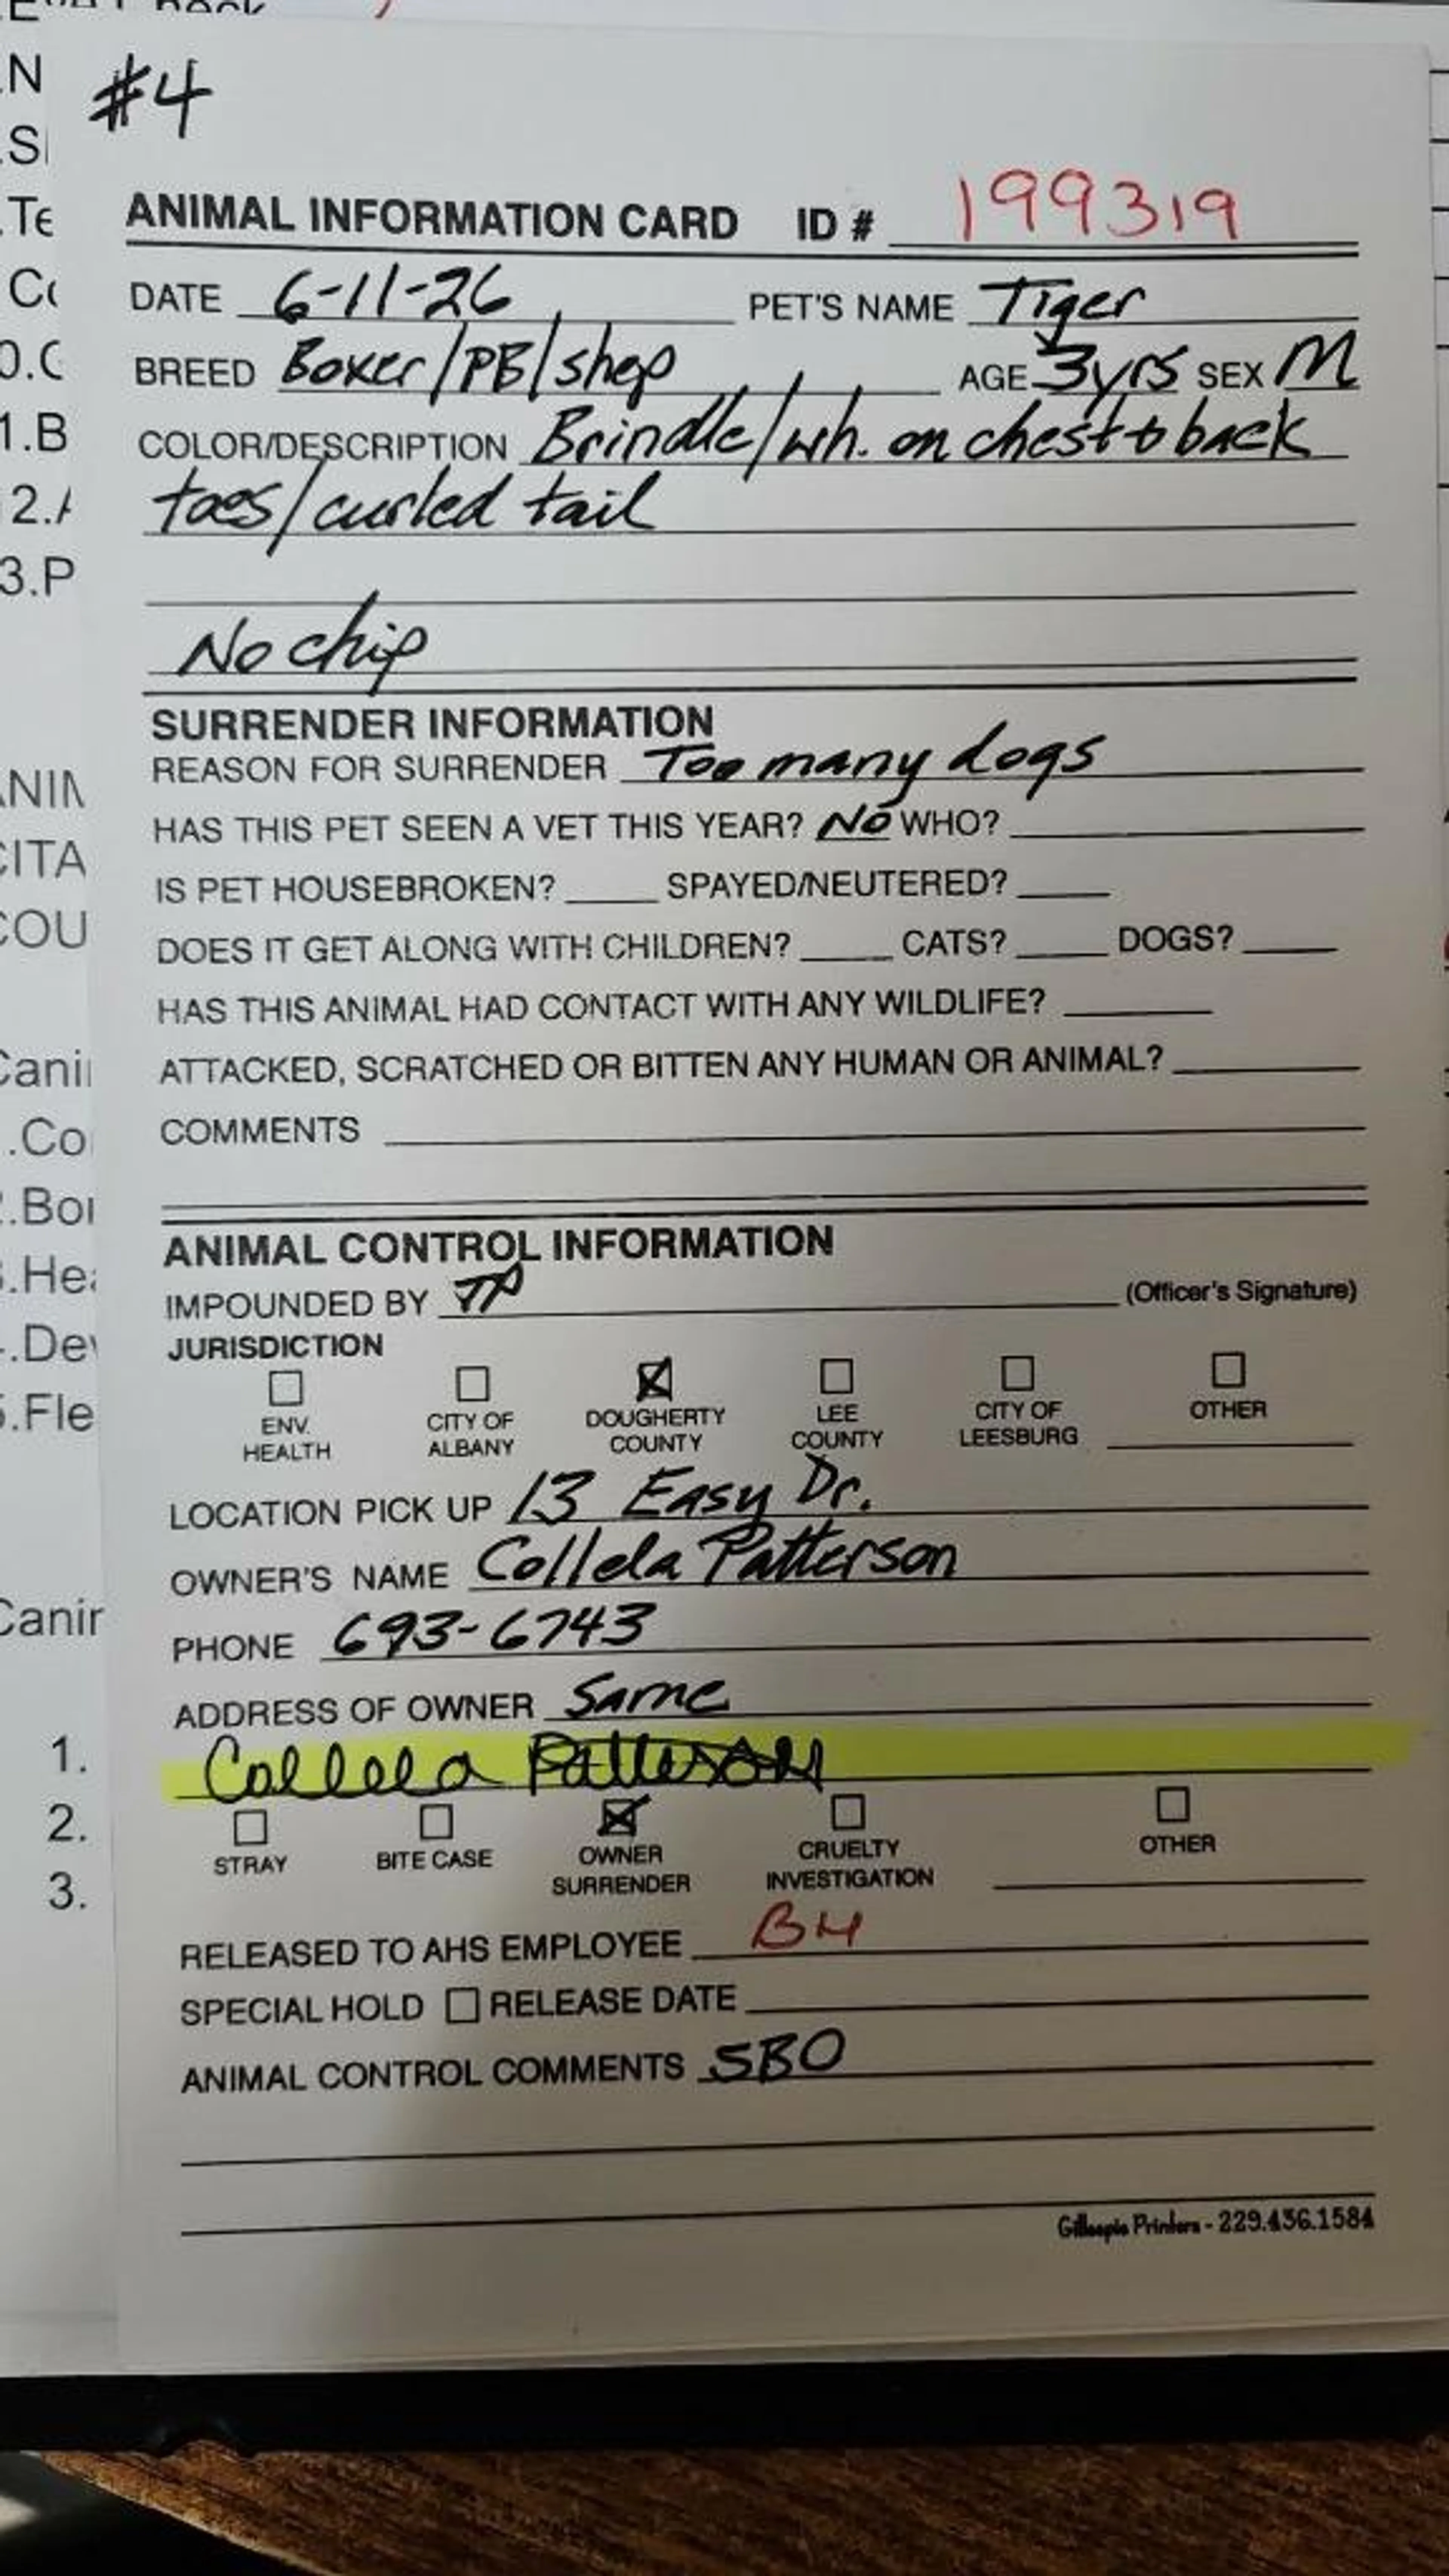 #4
ANIMAL INFORMATION CARD ID # 199319
DATE 6-11-26 PET'S NAME Tiger
BREED Boxer/PB/shep AGE 3yrs SEX M
COLOR/DESCRIPTION Brindle/wh. on chest & back
toes/curled tail
No chip
SURRENDER INFORMATION
REASON FOR SURRENDER Too many dogs
HAS THIS PET SEEN A VET THIS YEAR? No WHO?
IS PET HOUSEBROKEN? SPAYED/NEUTERED?
DOES IT GET ALONG WITH CHILDREN? CATS? DOGS?
HAS THIS ANIMAL HAD CONTACT WITH ANY WILDLIFE?
ATTACKED, SCRATCHED OR BITTEN ANY HUMAN OR ANIMAL?
COMMENTS
ANIMAL CONTROL INFORMATION
IMPOUNDED BY (Officer's Signature)
JURISDICTION
ENV. HEALTH
CITY OF ALBANY
DOUGHERTY COUNTY
LEE COUNTY
CITY OF LEESBURG
OTHER
LOCATION PICK UP 13 Easy Dr.
OWNER'S NAME Collela Patterson
PHONE 693-6743
ADDRESS OF OWNER Same
Collela Patterson
STRAY
BITE CASE
OWNER SURRENDER
CRUELTY INVESTIGATION
OTHER
RELEASED TO AHS EMPLOYEE BH
SPECIAL HOLD RELEASE DATE
ANIMAL CONTROL COMMENTS SBO
Gillespie Printers - 229.436.1584